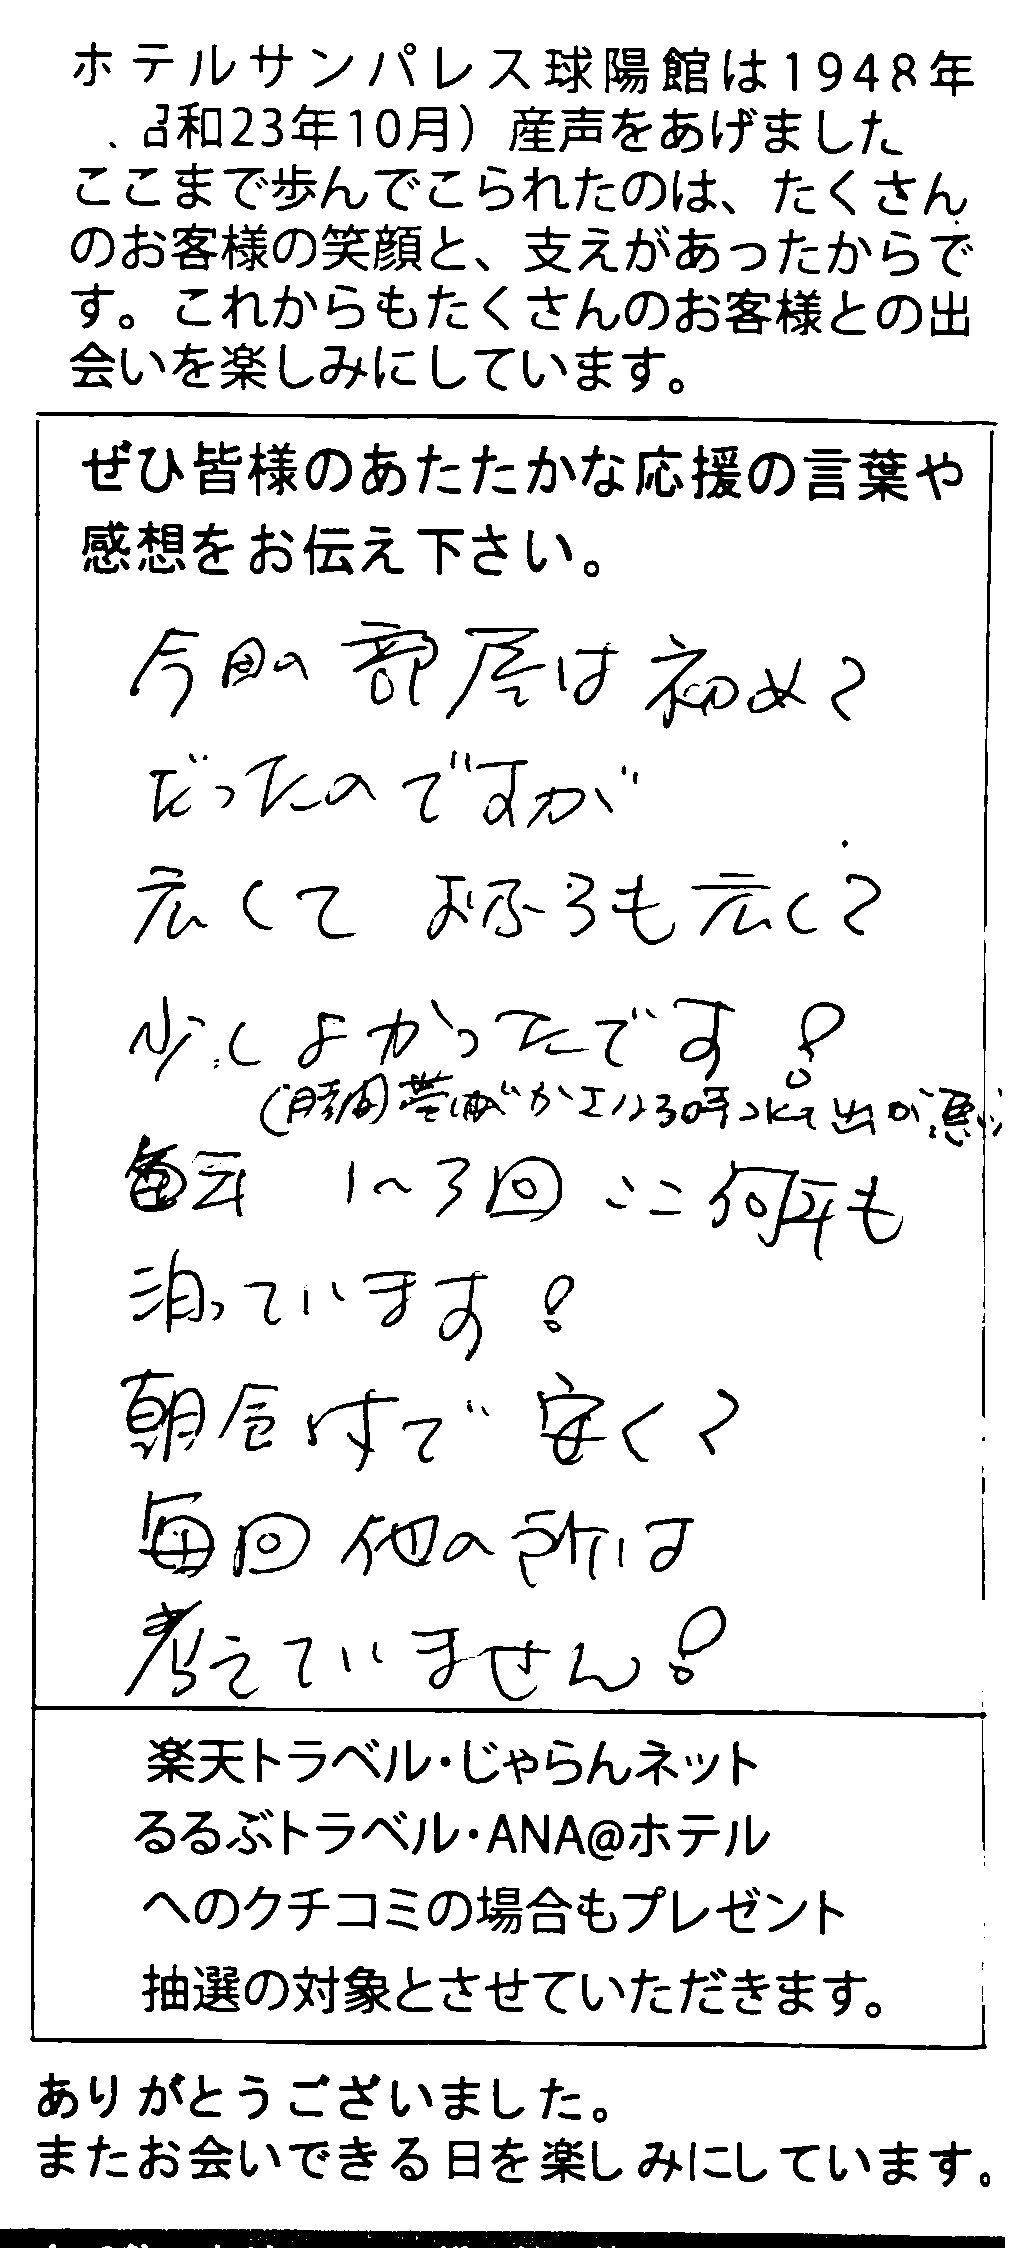 ホテルサンパレス球陽館は1948年
昭和23年10月）産声をあげました
ここまで歩んでこられたのは、たくさん
のお客様の笑顔と、支えがあったからで
す。これからもたくさんのお客様との出
会いを楽しみにしています。
ぜひ皆様のあたたかな応援の言葉や
感想をお伝え下さい。
今回の部屋は初めて
だったのですが
広くて おふろも広くて
少しよかったです!
(時間帯 出が悪い
毎年 1〜3回 ここ何年も
泊っています!
朝食付で 安くて
毎回 他の所は
考えていません!
楽天トラベル・じゃらんネット
るるぶトラベル・ANA@ホテル
へのクチコミの場合もプレゼント
抽選の対象とさせていただきます。
ありがとうございました。
またお会いできる日を楽しみにしています。